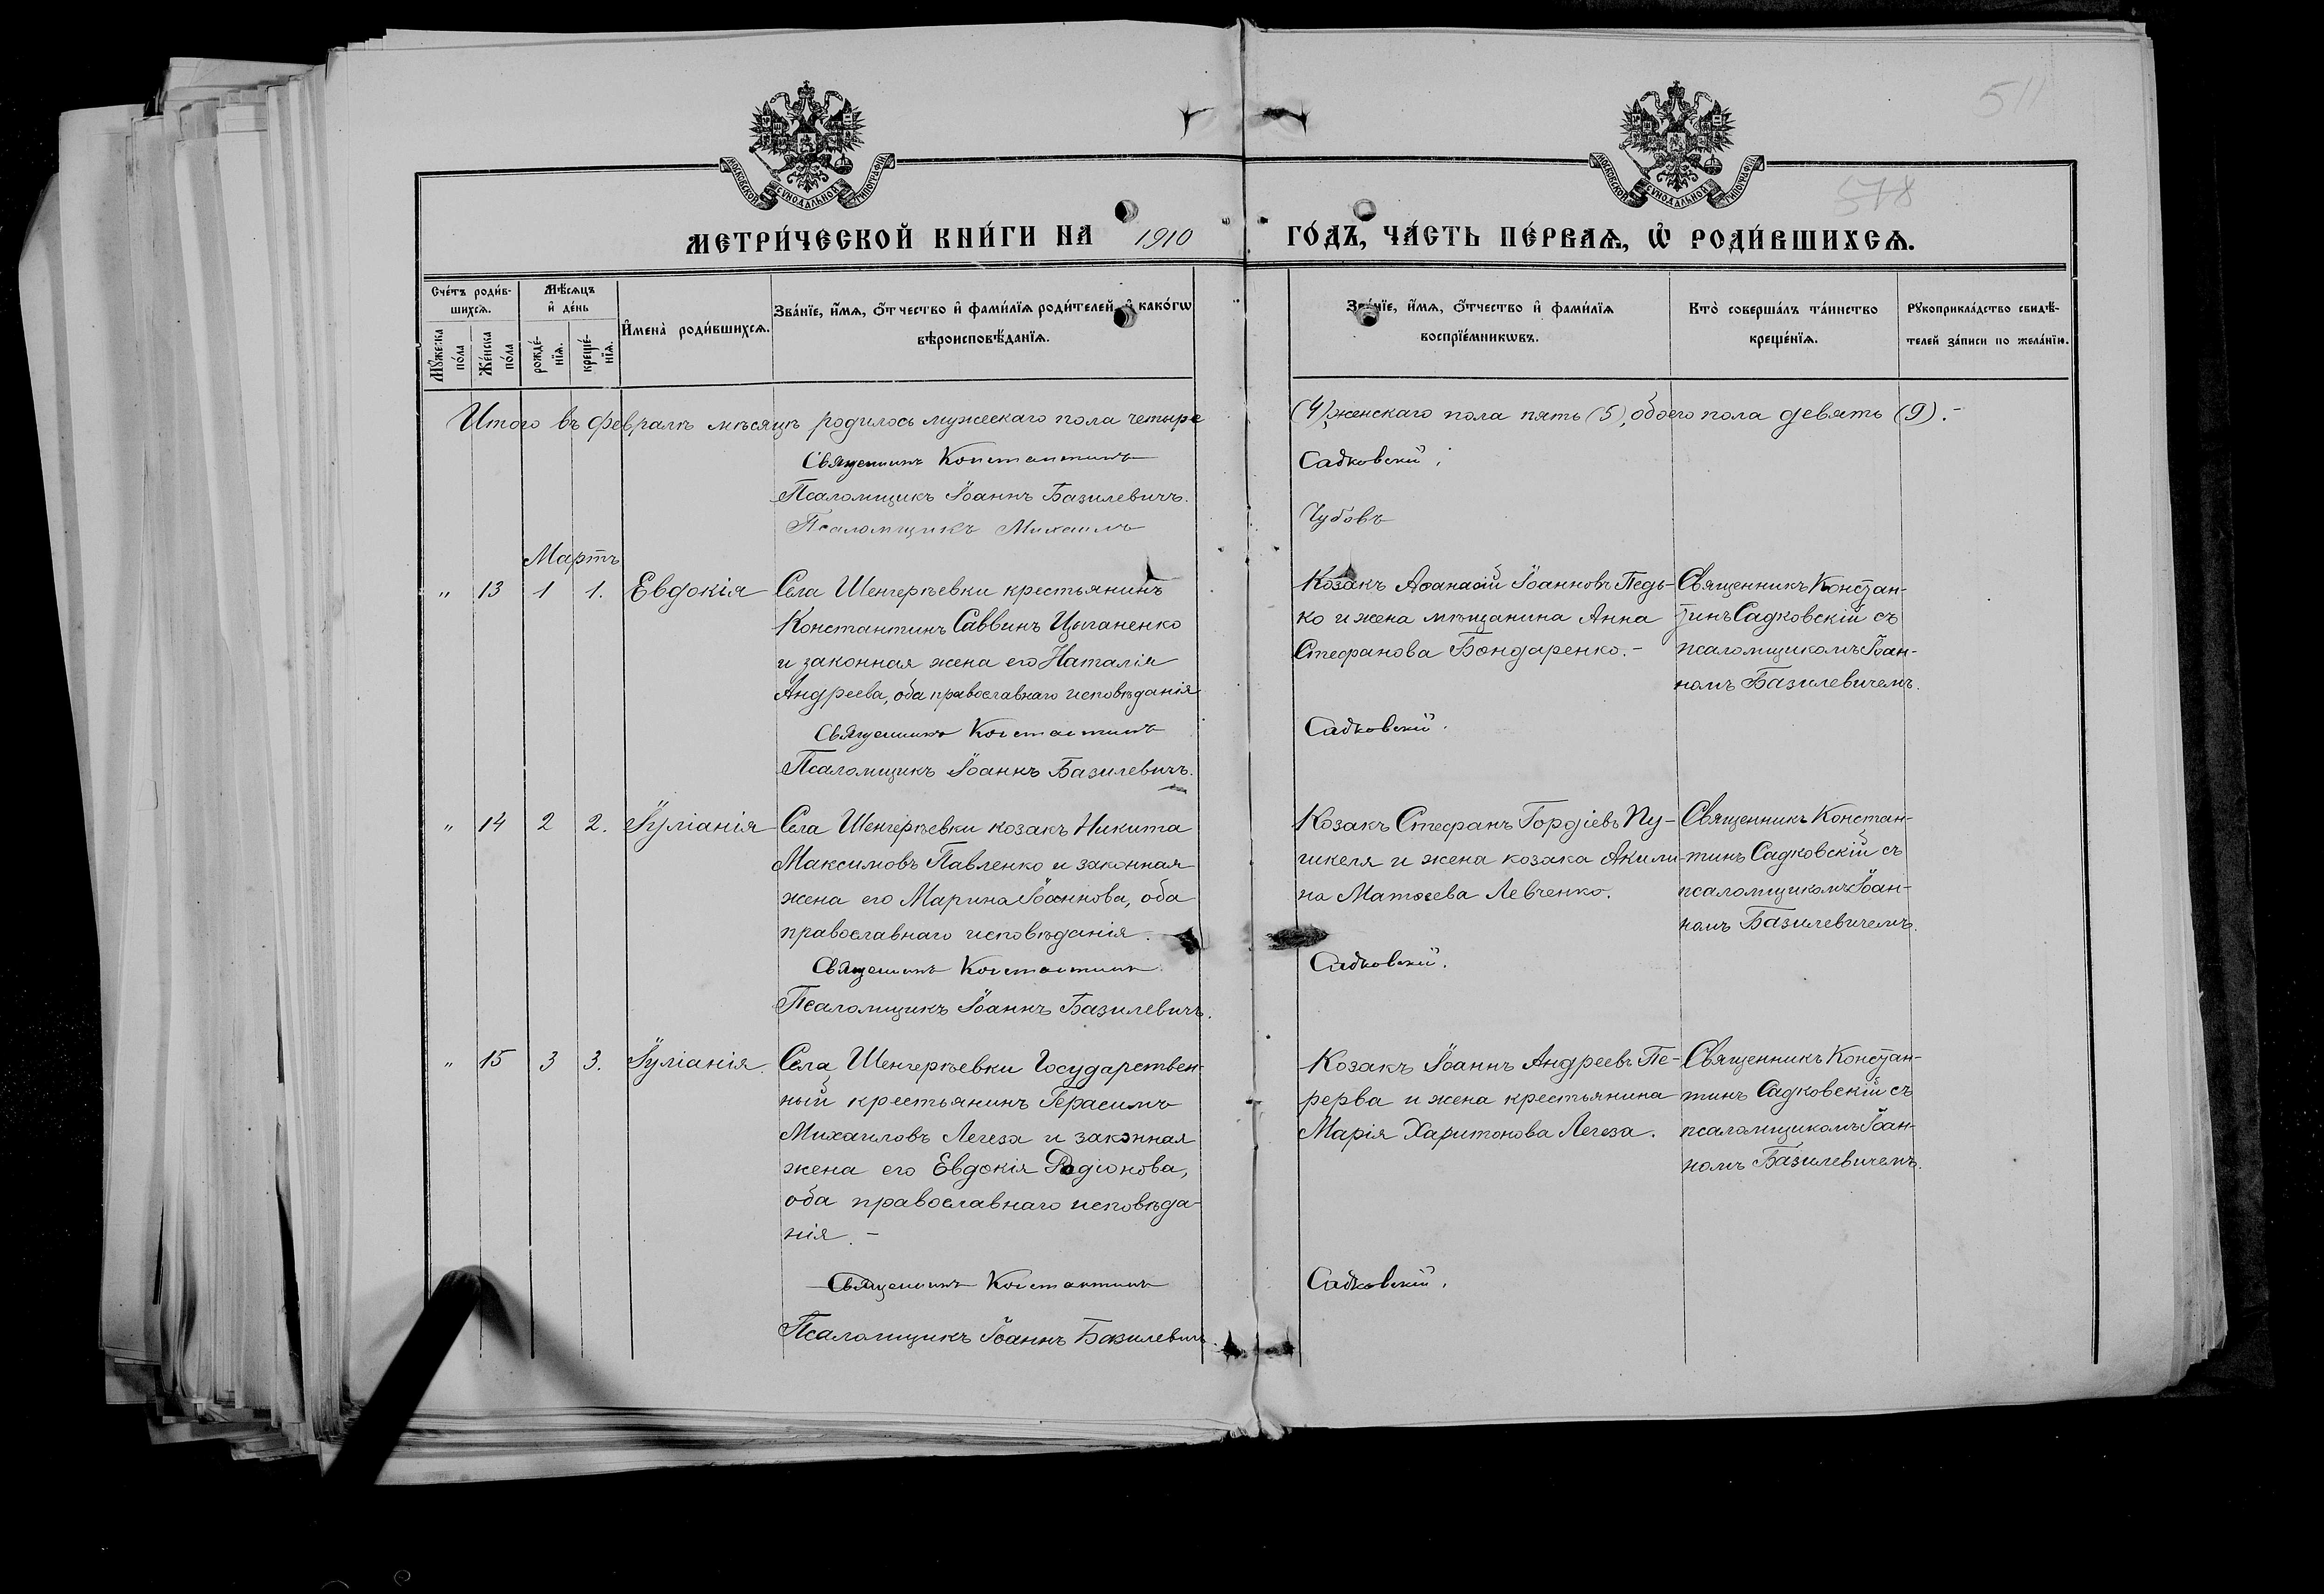 511
578
МОСКОВСКОЙ СѴНОДАЛЬНОЙ ТИПОГРАФІИ
МОСКОВСКОЙ СѴНОДАЛЬНОЙ ТИПОГРАФІИ
МЕТРИ́ЧЕСКОЙ КНИ́ГИ НА 1910 ГО́ДЪ, ЧА́СТЬ ПЕ́РВАѦ, Ѿ РОДИ́ВШИХСѦ.
Сче́тъ роди́в-
шихсѧ.
Мꙋ́жеска
по́ла
Же́нска
по́ла
Мѣ́сѧцъ
и҆ де́нь
рожде́-
нїѧ.
креще́-
нїѧ.
И҆мена̀ роди́вшихсѧ.
Зва́нїе, и҆́мѧ, ѻ҆́тчество и҆ фами́лїѧ роди́телей, и҆ како́гѡ
вѣроисповѣ́данїѧ.
Зва́нїе, и҆́мѧ, ѻ҆́тчество и҆ фами́лїѧ
воспрїе́мникѡвъ.
Кто̀ соверша́лъ та́инство
креще́нїѧ.
Рꙋкоприкла́дство свидѣ́-
телей за́писи по жела́нїю.
Итого въ февралѣ мѣсяцѣ родилось мужескаго пола четыре (4), женскаго пола пять (5), обоего пола девять (9).-
Священникъ Константинъ Садковскій.
Псаломщикъ Іоаннъ Базилевичъ.
Псаломщикъ Михаилъ Чубовъ
Мартъ
" 13 1 1. Евдокія
Села Шенгерѣевки крестьянинъ
Константинъ Саввинъ Цыганенко
и законная жена его Наталія
Андреева, оба православнаго исповѣданія
Козакъ Аѳанасій Іоанновъ Педь-
ко и жена мѣщанина Анна
Стефанова Бондаренко.-
Священникъ Констан-
тинъ Садковскій съ
псаломщикомъ Іоан-
номъ Базилевичемъ.
Священникъ Константинъ Садковскій.
Псаломщикъ Іоаннъ Базилевичъ.
" 14 2 2. Іуліанія
Села Шенгерѣевки козакъ Никита
Максимовъ Павленко и законная
жена его Марина Іоаннова, оба
православнаго исповѣданія.
Козакъ Стефанъ Гордіевъ Пу-
шкеля и жена козака Акили
на Матѳеева Левченко.
Священникъ Констан-
тинъ Садковскій съ
псаломщикомъ Іоан-
номъ Базилевичемъ.
Священникъ Константинъ Садковскій.
Псаломщикъ Іоаннъ Базилевичъ.
" 15 3 3. Іуліанія.
Села Шенгерѣевки Государствен-
ный крестьянинъ Герасимъ
Михаиловъ Легеза и законная
жена его Евдокія Родіонова,
оба православнаго исповѣда-
нія.-
Козакъ Іоаннъ Андреевъ Пе-
рерва и жена крестьянина
Марія Харитонова Легеза.
Священникъ Констан-
тинъ Садковскій съ
псаломщикомъ Іоан-
номъ Базилевичемъ.
Священникъ Константинъ Садковскій.
Псаломщикъ Іоаннъ Базилевичъ.